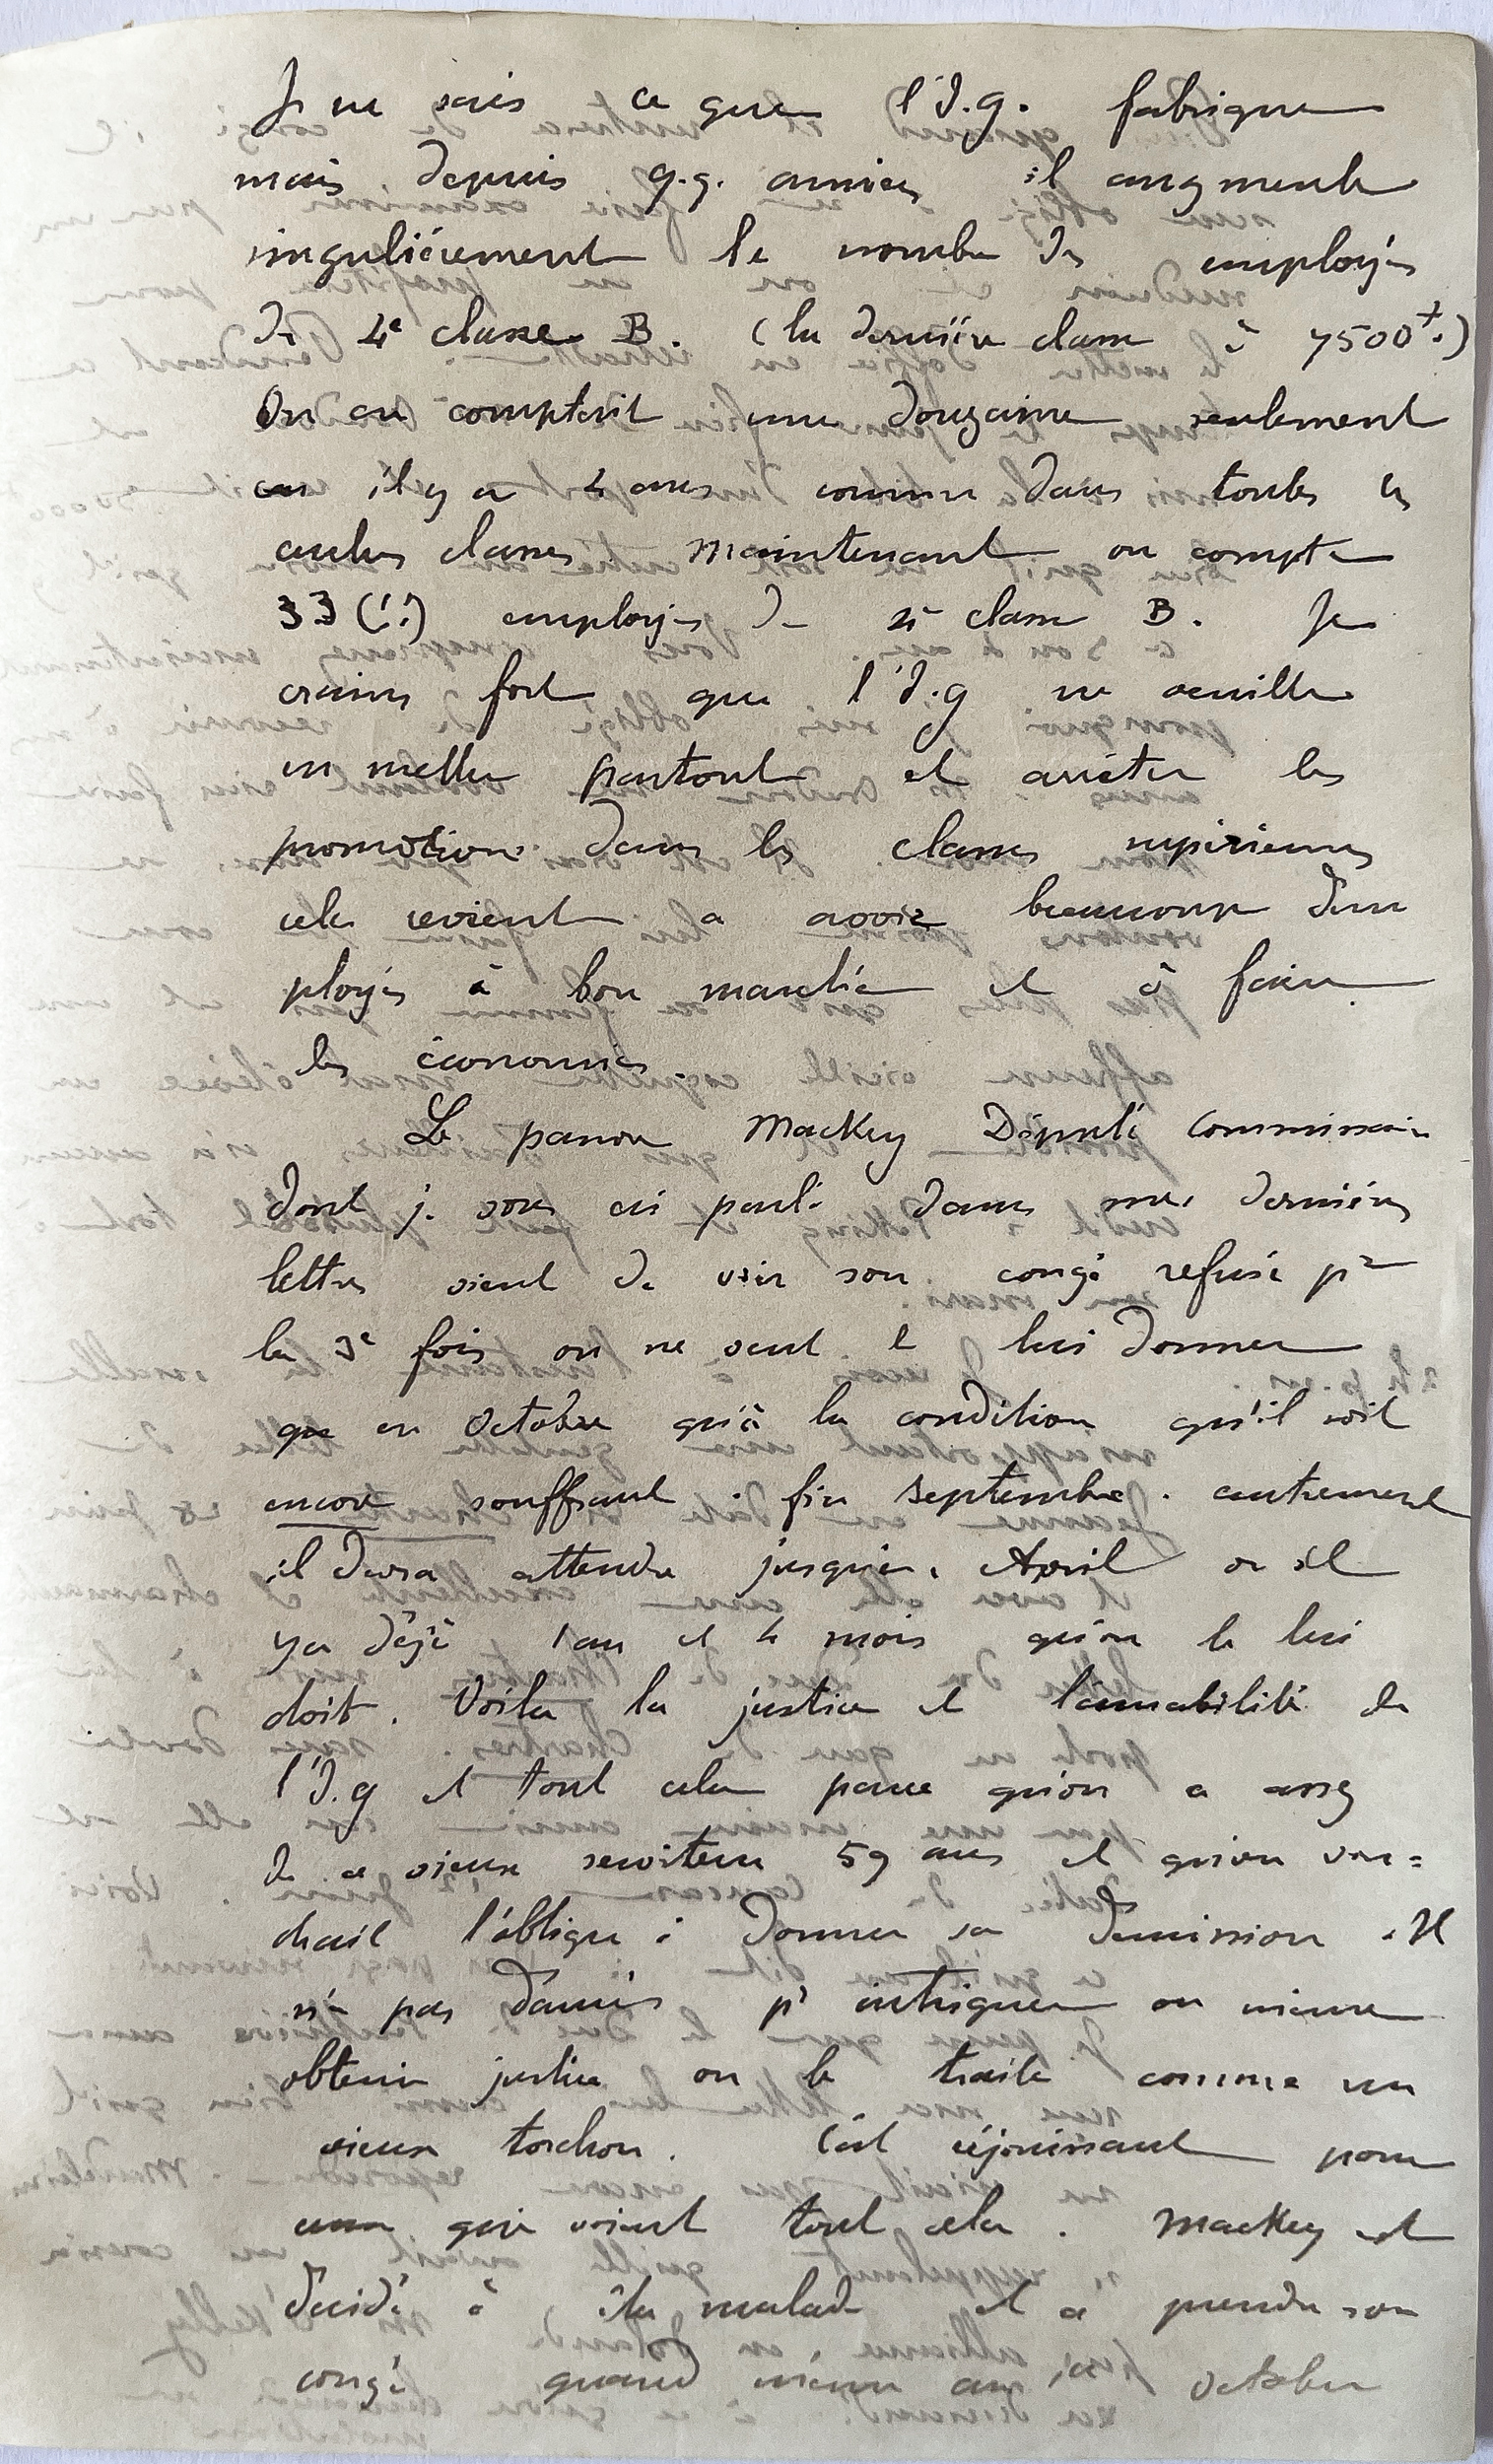 Je ne sais ce que l'I.G. fabrique
mais depuis q.q. années il augmente
singulièrement le nombre des employés
de 4e classe B. (la dernière classe à 7500 )
On en comptait une douzaine seulement
il y a 4 ans comme dans toutes les
autres classes maintenant on compte
33 (!!) employés de 4e classe B. Je
crains fort que l'I.G ne veuille
en mettre partout et arrêter les
promotions dans les classes supérieures
cela revient a avoir beaucoup d'em
ployés à bon marché et à faire
des économies.
Le pauvre Mackey Député Commissaire
dont je vous ai parlé dans mes dernières
lettres vient de voir son congé refusé pr
la 3e fois on ne veut le lui donner
que en Octobre qu'à la condition qu'il soit
encore souffrant fin Septembre. autrement
il devra attendre jusqu'en April or il
y a déjà 1 an et 4 mois qu'on le lui
doit. Voila la justice et l'amabilité de
l'I.G et tout cela parce qu'on a assez
de ce vieux serviteur 59 ans et qu'on vou=
drait l'obliger à donner sa demission. Il
n'a pas d'amis pr intriguer ou même
obtenir justice on le traite comme un
vieux torchon. C'est réjouissant pour
ceux qui voient tout cela. Mackey est
décidé à être malade et a prendre son
congé quand même au 1er October